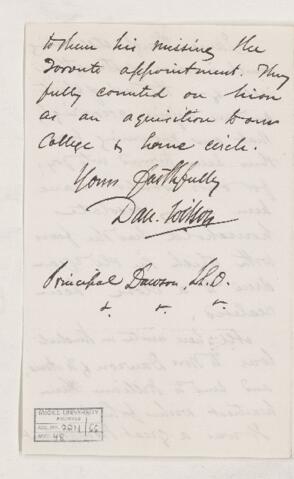 to them his missing the
Toronto appointment. They
fully counted on him
as an aquisition to our
College & home circle.
Yours faithfully
Dan. Wilson
Principal Dawson, LL.D.
&. &. &.
McGILL UNIVERSITY
ARCHIVES
ACC. NO.
REF. 48